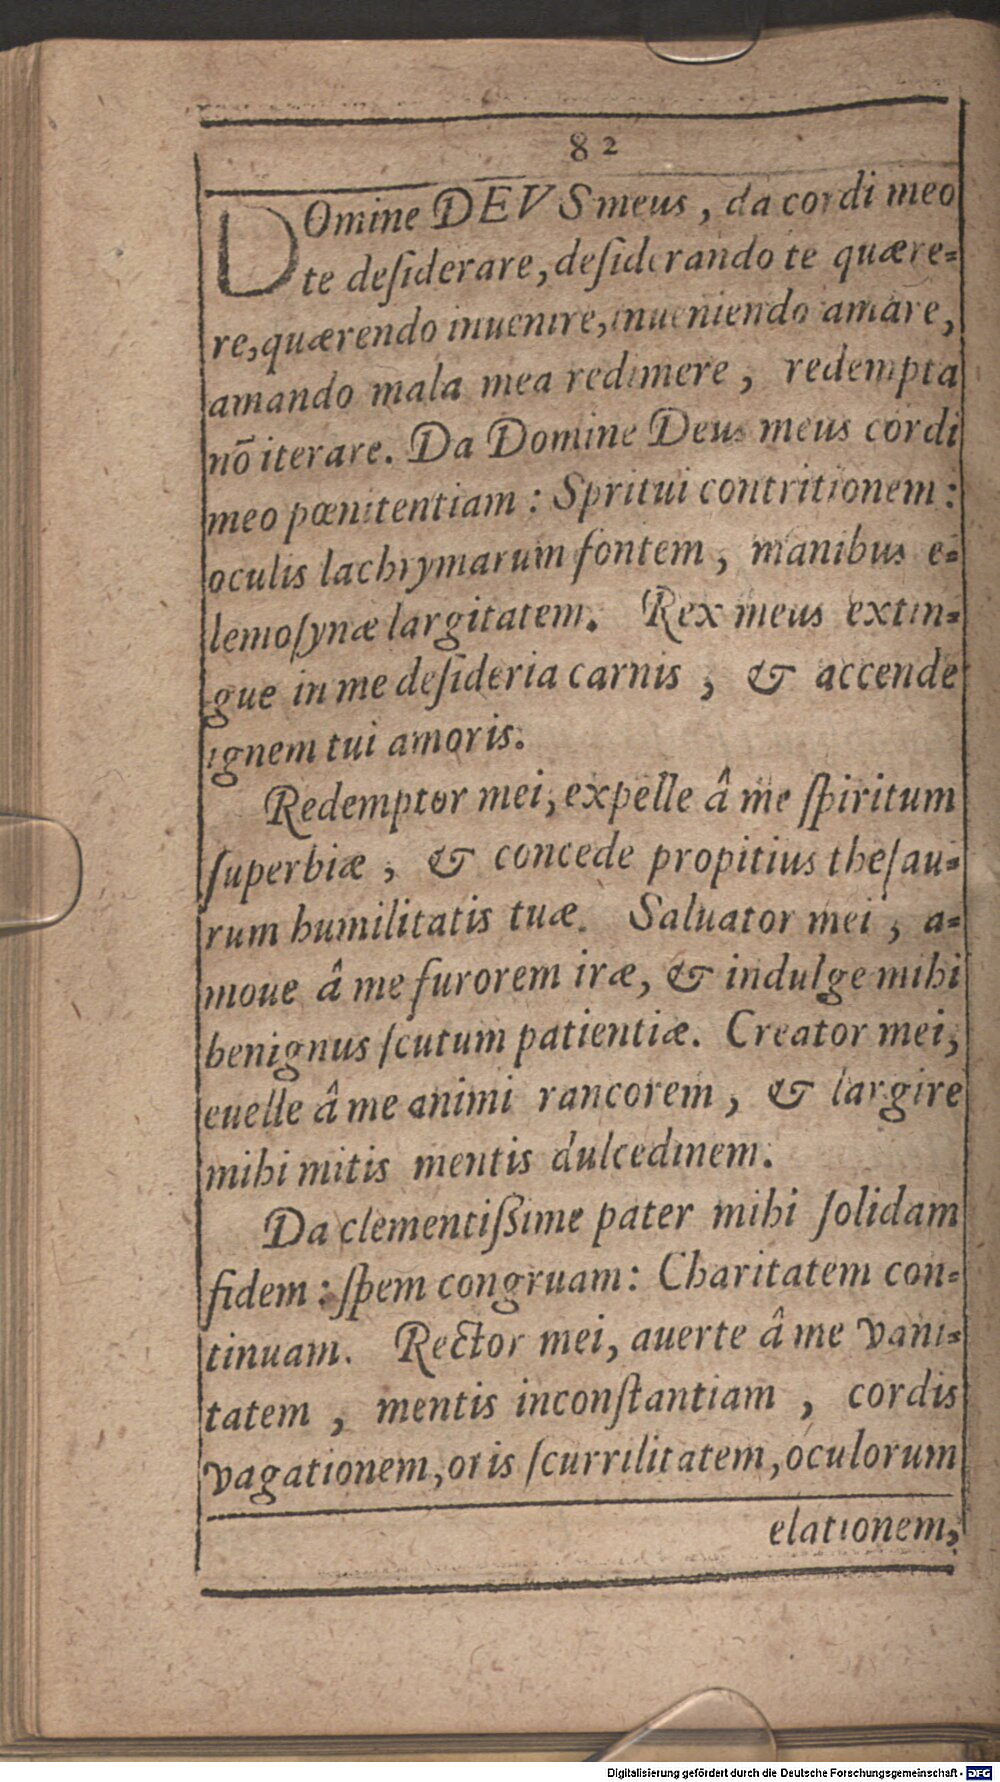 82
DOmine DEVS meus, da cordi meo
te deſiderare, deſiderando te quære-
re, quærendo inuenire, inueniendo amare,
amando mala mea redimere, redempta
nō iterare. Da Domine Deus meus cordi
meo pœnitentiam: Spritui contritionem:
oculis lachrymarum fontem, manibus e-
lemoſynæ largitatem. Rex meus extin-
gue in me deſideria carnis, & accende
ignem tui amoris.
Redemptor mei, expelle â me ſpiritum
ſuperbiæ, & concede propitius theſau-
rum humilitatis tuæ. Saluator mei, a-
moue â me furorem iræ, & indulge mihi
benignus ſcutum patientiæ. Creator mei,
euelle â me animi rancorem, & largire
mihi mitis mentis dulcedinem.
Da clementiſſime pater mihi ſolidam
fidem: ſpem congruam: Charitatem con-
tinuam. Rector mei, auerte â me vani-
tatem, mentis inconſtantiam, cordis
vagationem, oris ſcurrilitatem, oculorum
elationem,
Digitalisierung gefördert durch die Deutsche Forschungsgemeinschaft - DFG